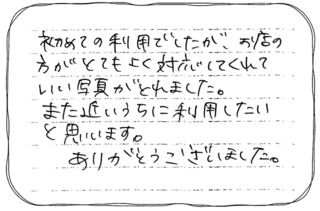 初めての利用でしたが、お店の
方がとてもよく対応してくれて
いい写真がとれました。
また近いうちに利用したい
と思います。
ありがとうございました。